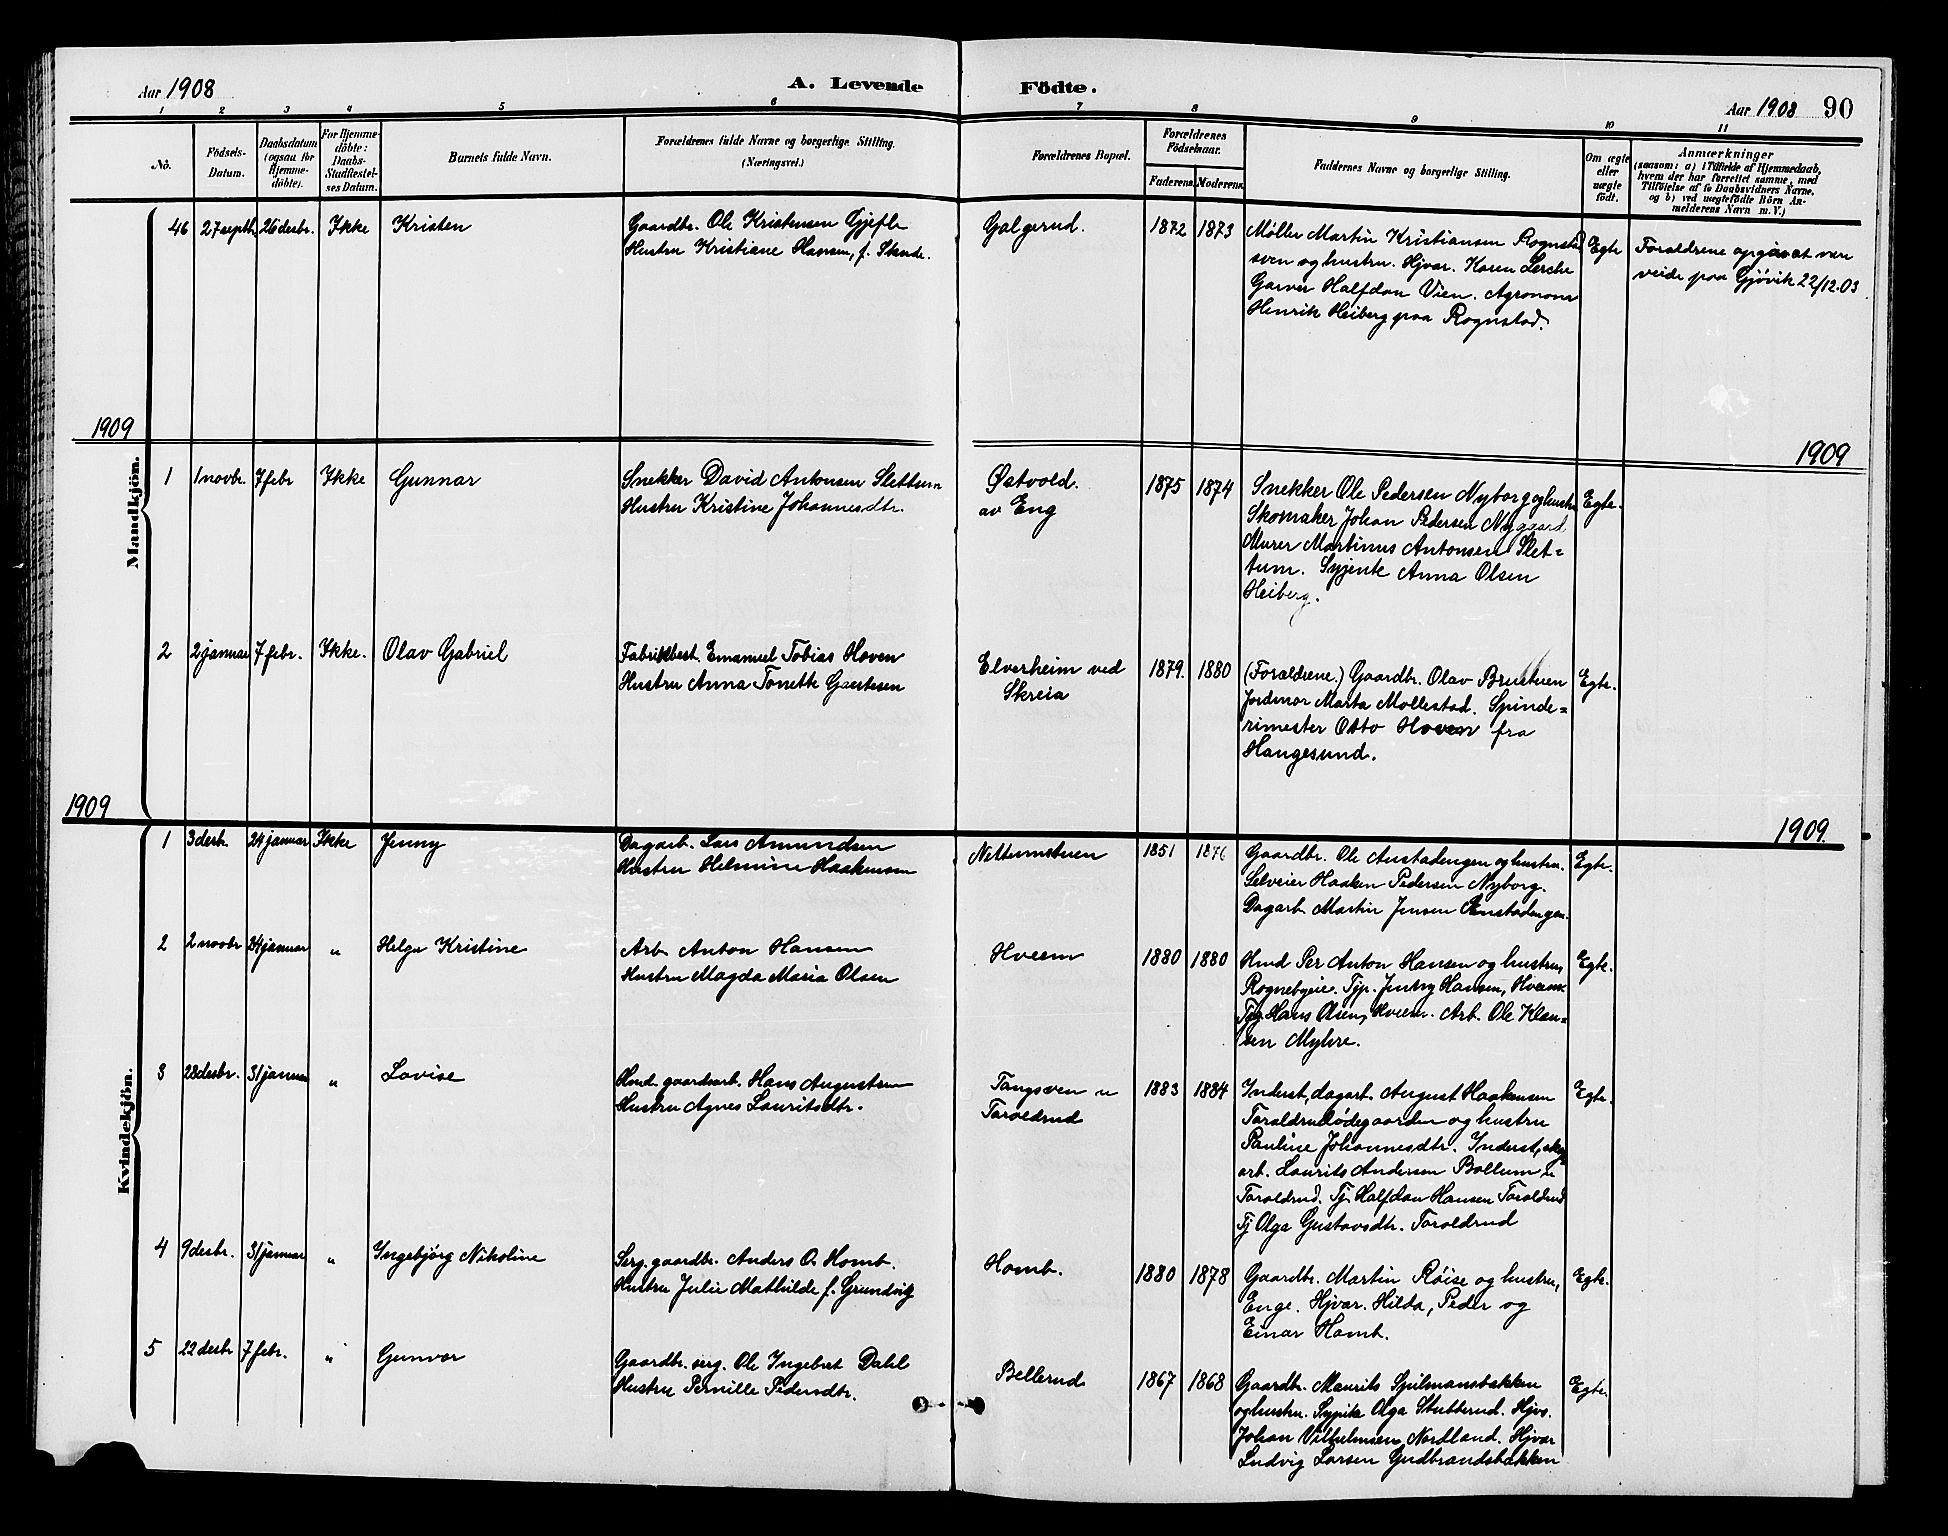 Aar 1908
A. Levende Födte.
Aar 1908 90
1 2 3 4 5 6 7 8 9 10 11
No.
Födsels-
Datum.
Daabsdatum
(ogsaa for
Hjemme-
döbte).
For Hjemme-
döbte:
Daabs-
Stadfæstel-
ses Datum.
Barnets fulde Navn.
Forældrenes fulde Navne og borgerlige Stilling.
(Næringsvei.)
Forældrenes Bopæl.
Forældrenes
Födselsaar.
Faderens. Moderens.
Faddernes Navne og borgerlige Stilling.
Om ægte
eller
uægte
födt.
Anmærkninger
(saasom: a) i Tilfælde af Hjemmedaab,
hvem der har forrettet samme, med
Tilföielse af to Daabsvidners Navne.
og b) ved uægtefödte Börn An-
melderens Navn m. V.)
Mandkjön.
46 27 septb. 26 desbr. Ikke Kristen
Gaardbr. Ole Kristensen Gjefle
Hustru Kristiane Hansen, f. Skunde.
Galgerud. 1872 1873
Møller Martin Kristiansen Rognstad
sven og hustru. Hjvar. Karen Lerche
Garver Halfdan Vien. Agronom
Henrik Heiberg paa Rognstad.
Egte
Foraldrene opga at være
veide paa Gjøvik 22/12.03
1909
1909
1 1 novbr. 7 febr Ikke Gunnar
Snekker David Antonsen Slettum
Hustru Kristine Johannesdtr.
Østvold.
av Eng
1875 1874
Snekker Ole Pedersen Nyborg og hustru
Skomaker Johan Pedersen Nygaard
Murer Martinus Antonsen Slet=
tum. Syjente Anna Olsen
Heiberg.
Egte.
2 2 januar 7 febr. Ikke. Olav Gabriel
Fabrikbest. Emanuel Tobias Hoven
Hustru Anna Tonette Gaertesen
Elverheim ved
Skreia
1879. 1880
(Foraldrene.) Gaardbr. Olav Brustuen
Jordmor Marta Mollestad. Spinde=
rimester Otto Hoven fra
Haugesund.
Egte.
1909
1909.
Kvindekjön.
1 3 desb. 24 januar Ikke Jenny
Dagarb. Lars Amundsen
Hustru Helmine Haakensen
Nettumstuen 1851 1876
Gaardbr. Ole Anstadengen og hustru.
Selveier Haaken Pedersen Nyborg.
Dagarb. Martin Jensen Anstadengen.
Egte.
2 2 novbr 24 januar " Helga Kristine
Arb. Anton Hansen
Hustru Magda Maria Olsen
Hveem 1880 1880
Hmd Per Anton Hansen og hustru,
Rognebyeie. Tjp. Jenny Hansen, Hveem
Tjg Hans Olsen, Hveem. Arb. Ole Klau=
sen Myhre.
Egte.
3 28 desbr. 31 januar " Lovise
Hmd. gaardsarb. Hans Augustsen
Hustru Agnes Lauritsdtr.
Tangsven u
Taroldrud
1883 1884
Inderst, dagarb. August Haakensen
Taraldrudødegaarden og hustru
Pauline Johannesdtr. Inderst, skog
arb. Laurits Andersen Bollum u
Taroldrud. Tj. Halfdan Hansen Taroldrud
Tj Olga Gustavsdtr. Taroldrud
Egte.
4 9 desbr. 31 januar " Ingebjørg Nikoline
Serg. gaardbr. Anders O. Homb.
Hustru Julie Mathilde f. Grundvig
Homb. 1880 1878
Gaardbr. Martin Røise og hustru,
Enge. Hjvar. Hilda, Peder og
Einar Homb.
Egte.
5 22 desbr 7 febr. " Gunvor
Gaardbr. serg. Ole Ingebret Dahl
Hustru Pernille Pedersdtr.
Bellerud 1867 1868
Gaardbr. Maurits Spilmansbakken
og hustru. Sypike Olga Stubberud. Hjvs.
Johan Vilhelmsen Nordland. Hjvar
Ludvig Larsen Gudbrandsbakken
Egte.